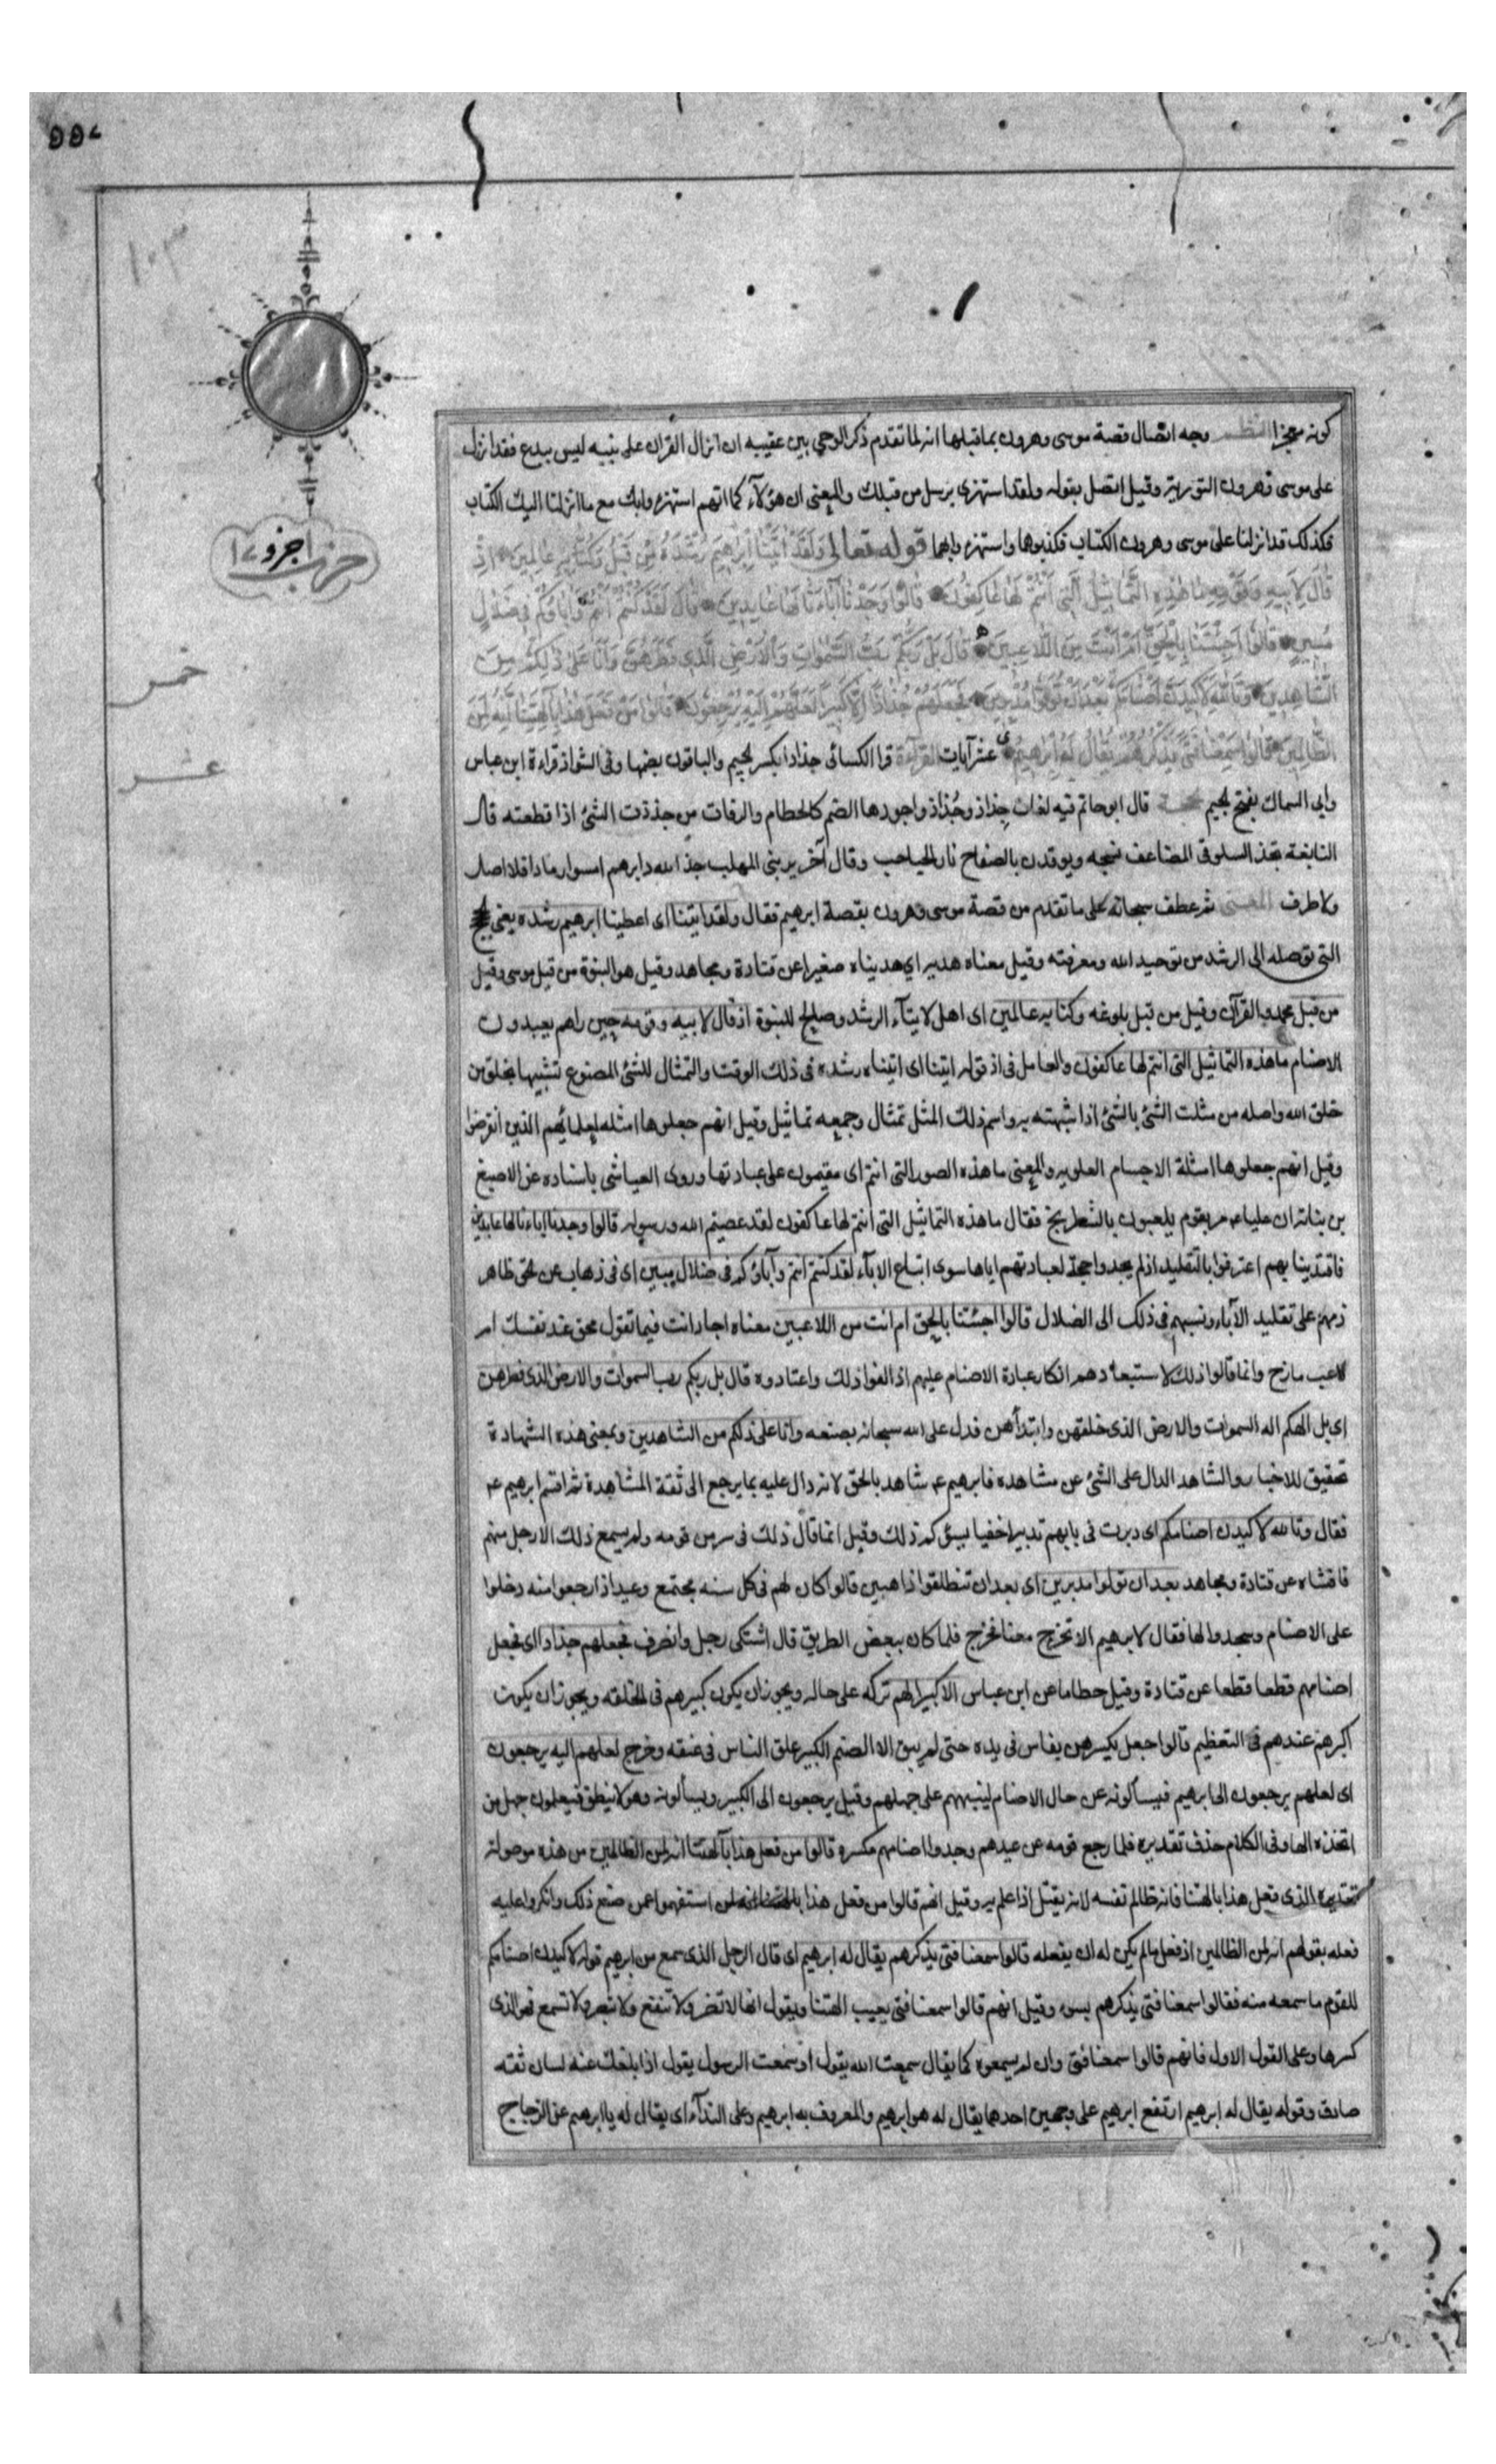 كونه معجزا النظم وجه اتصال قصة موسى وهرون بما قبلها انه لما تقدم ذكر الوحي بين عقيبه ان انزال القران على نبيه ليس ببدع فقد انزل
على موسى وهرون التورية وقيل اتصل بقوله ولقد استهزى برسل من قبلك والمعنى ان هؤلآء كما انهم استهزءوا بك مع ما انزلنا اليك الكتاب
فكذلك قد انزلنا على موسى وهرون الكتاب فكذبوهما واستهزءوا بهما قوله تعالى وَلَقَدْ اٰتَيْنَا اِبْرٰهِيمَ رُشْدَهُ مِنْ قَبْلُ وَكُنَّا بِهِ عَالِمِينَ اِذْ
قَالَ لِاَبِيهِ وَقَوْمِهِ مَا هٰذِهِ التَّمَاثِيلُ الَّتِى اَنْتُمْ لَهَا عَاكِفُونَ قَالُوا وَجَدْنَا آبَاءَنَا لَهَا عَابِدِينَ قَالَ لَقَدْ كُنْتُمْ اَنْتُمْ وَآبَاؤُكُمْ فِى ضَلَالٍ
مُبِينٍ قَالُوا اَجِئْتَنَا بِالْحَقِّ اَمْ اَنْتَ مِنَ اللَّاعِبِينَ قَالَ بَلْ رَبُّكُمْ رَبُّ السَّمٰوَاتِ وَالْاَرْضِ الَّذِى فَطَرَهُنَّ وَاَنَا عَلٰى ذٰلِكُمْ مِنَ
الشَّاهِدِينَ وَتَاللّٰهِ لَاَكِيدَنَّ اَصْنَامَكُمْ بَعْدَ اَنْ تُوَلُّوا مُدْبِرِينَ فَجَعَلَهُمْ جُذَاذًا اِلَّا كَبِيرًا لَهُمْ لَعَلَّهُمْ اِلَيْهِ يَرْجِعُونَ قَالُوا مَنْ فَعَلَ هٰذَا بِآلِهَتِنَا اِنَّهُ لَمِنَ
الظَّالِمِينَ قَالُوا سَمِعْنَا فَتًى يَذْكُرُهُمْ يُقَالُ لَهُ اِبْرٰهِيمُ عشر آيات القرآءة قرا الكسائى جذاذا بكسر الجيم والباقون بضمها وفى الشواذ قراءة ابن عباس
وابى السماك بفتح الجيم الحجة قال ابو حاتم فيه لغات جِذاذ وجُذاذ واجودها الضم كالحطام والرفات من جذذت الشئ اذا قطعته قال
النابغة تجذ السلوقى المضاعف نسجه ويوقدن بالصفاح نار الحباحب وقال آخر يرثى المهلب جذ الله دابرهم امسوا رمادا فلا اصل
ولا طرف المعنى ثم عطف سبحانه على ما تقدم من قصة موسى وهرون بقصة ابرهيم فقال ولقد اتينا اى اعطينا ابرهيم رشده يعنى الحجج
التى توصله الى الرشد من توحيد الله ومعرفته وقيل معناه هديه اى هديناه صغيرا عن قتادة ومجاهد وقيل هو النبوة من قبل موسى وقيل
من قبل محمد وبالقرآن وقيل من قبل بلوغه وكنا به عالمين اى اهل لايتآء الرشد وصالح للنبوة اذ قال لابيه وقومه حين راهم يعبدون
الاصنام ما هذه التماثيل التى انتم لها عاكفون والعامل فى اذ قوله اتينا اى اتيناه رشده فى ذلك الوقت والتمثال للشئ المصنوع تشبيها بخلق من
خلق الله واصله من مثلت الشئ بالشئ اذا شبهته به واسم ذلك المثل تمثال وجمعه تماثيل وقيل انهم جعلوها امثله لعلمائهم الذين انقرضوا
وقيل انهم جعلوها امثلة الاجسام العلويه والمعنى ما هذه الصور التى انتم اى مقيمون على عبادتها وروى العياشى باسناده عن الاصبغ
بن نباته ان عليا عم مر بقوم يلعبون بالشطرنج فقال ما هذه التماثيل التى انتم لها عاكفون لقد عصيتم الله ورسوله قالوا وجدنا اباءنا لها عابدين
فاقتدينا بهم اعترفوا بالتقليد اذ لم يجدوا حجة لعبادتهم اياها سوى اتباع الابآء لقد كنتم انتم وآباؤكم فى ضلال مبين اى فى ذهاب عن الحق ظاهر
ذمهم على تقليد الآباء ونسبهم فى ذلك الى الضلال قالوا اجئتنا بالحق ام انت من اللاعبين معناه اجاد انت فيما تقول محق عند نفسك ام
لاعب مازح وانما قالوا ذلك لاستبعادهم انكار عبادة الاصنام عليهم اذ الفوا ذلك واعتادوه قال بل ربكم رب السموات والارض الذى فطرهن
اى بل الهكم اله السموات والارض الذى خلقهن وابتدأهن فدل على الله سبحانه بصنعه وانا على ذلكم من الشاهدين ومعنى هذه الشهادة
تحقيق للاخبار والشاهد الدال على الشئ عن مشاهده فابرهيم عم شاهد بالحق لانه دال عليه بما يرجع الى ثقة المشاهدة ثم اقسم ابرهيم عم
فقال وتالله لاكيدن اصنامكم اى دبرت فى بابهم تدبيرا خفيا يسؤكم ذلك وقيل انما قال ذلك فى سر من قومه ولم يسمع ذلك الا رجل منهم
فافشاه عن قتادة ومجاهد بعد ان تولوا مدبرين اى بعد ان تنطلقوا ذاهبين قالوا كان لهم فى كل سنه مجتمع وعيد اذا رجعوا منه دخلوا
على الاصنام وسجدوا لها فقالوا لابرهيم الا تخرج معنا فخرج فلما كان ببعض الطريق قال اشتكى رجلى وانصرف فجعلهم جذاذا اى فجعل
اصنامهم قطعا قطعا عن قتادة وقيل حطاما عن ابن عباس الا كبيرا لهم تركه على حاله ويجوز ان يكون كبيرهم فى الخلقه ويجوز ان يكون
اكبرهم عندهم فى التعظيم قالوا جعل يكسرهن بفاس فى يده حتى لم يبق الا الصنم الكبير علق الفاس فى عنقه وخرج لعلهم اليه يرجعون
اى لعلهم يرجعون الى ابرهيم فيسألونه عن حال الاصنام لينبههم على جهلهم وقيل يرجعون الى الكبير ويسألونه وهو لا ينطق فيعلمون جهل من
اتخذه الها وفى الكلام حذف تقديره فلما رجع قومه عن عيدهم وجدوا اصنامهم مكسره قالوا من فعل هذا بآلهتنا انه لمن الظالمين من هذه موصولة
تقديره الذى فعل هذا بالهتنا فانه ظالم نفسه لانه يقتل اذا علم به وقيل انهم قالوا من فعل هذا استفهموا عمن صنع ذلك وانكروا عليه
فعله بقولهم انه لمن الظالمين اذ فعل ما لم يكن له ان يفعله قالوا سمعنا فتى يذكرهم يقال له ابرهيم اى قال الرجل الذى سمع من ابرهيم قوله لاكيدن اصنامكم
للقوم ما سمعه منه فقالوا سمعنا فتى يذكرهم بسوء وقيل انهم قالوا سمعنا فتى يعيب الهتنا ويقول انها لا تضر ولا تنفع ولا تبصر ولا تسمع فهو الذى
كسرها وعلى القول الاول فانهم قالوا سمعنا فتى وان لم يسمعوه كما يقال سمعت الله يقول او سمعت الرسول يقول اذا بلغك عنه لسان ثقه
صادق وقوله يقال له ابرهيم ارتفع ابرهيم على وجهين احدهما يقال له هو ابرهيم والمعروف به ابرهيم وعلى الندآء اى يقال له يا ابرهيم عن الزجاج
حزب ١ جزو ١٧
خمس
عشر